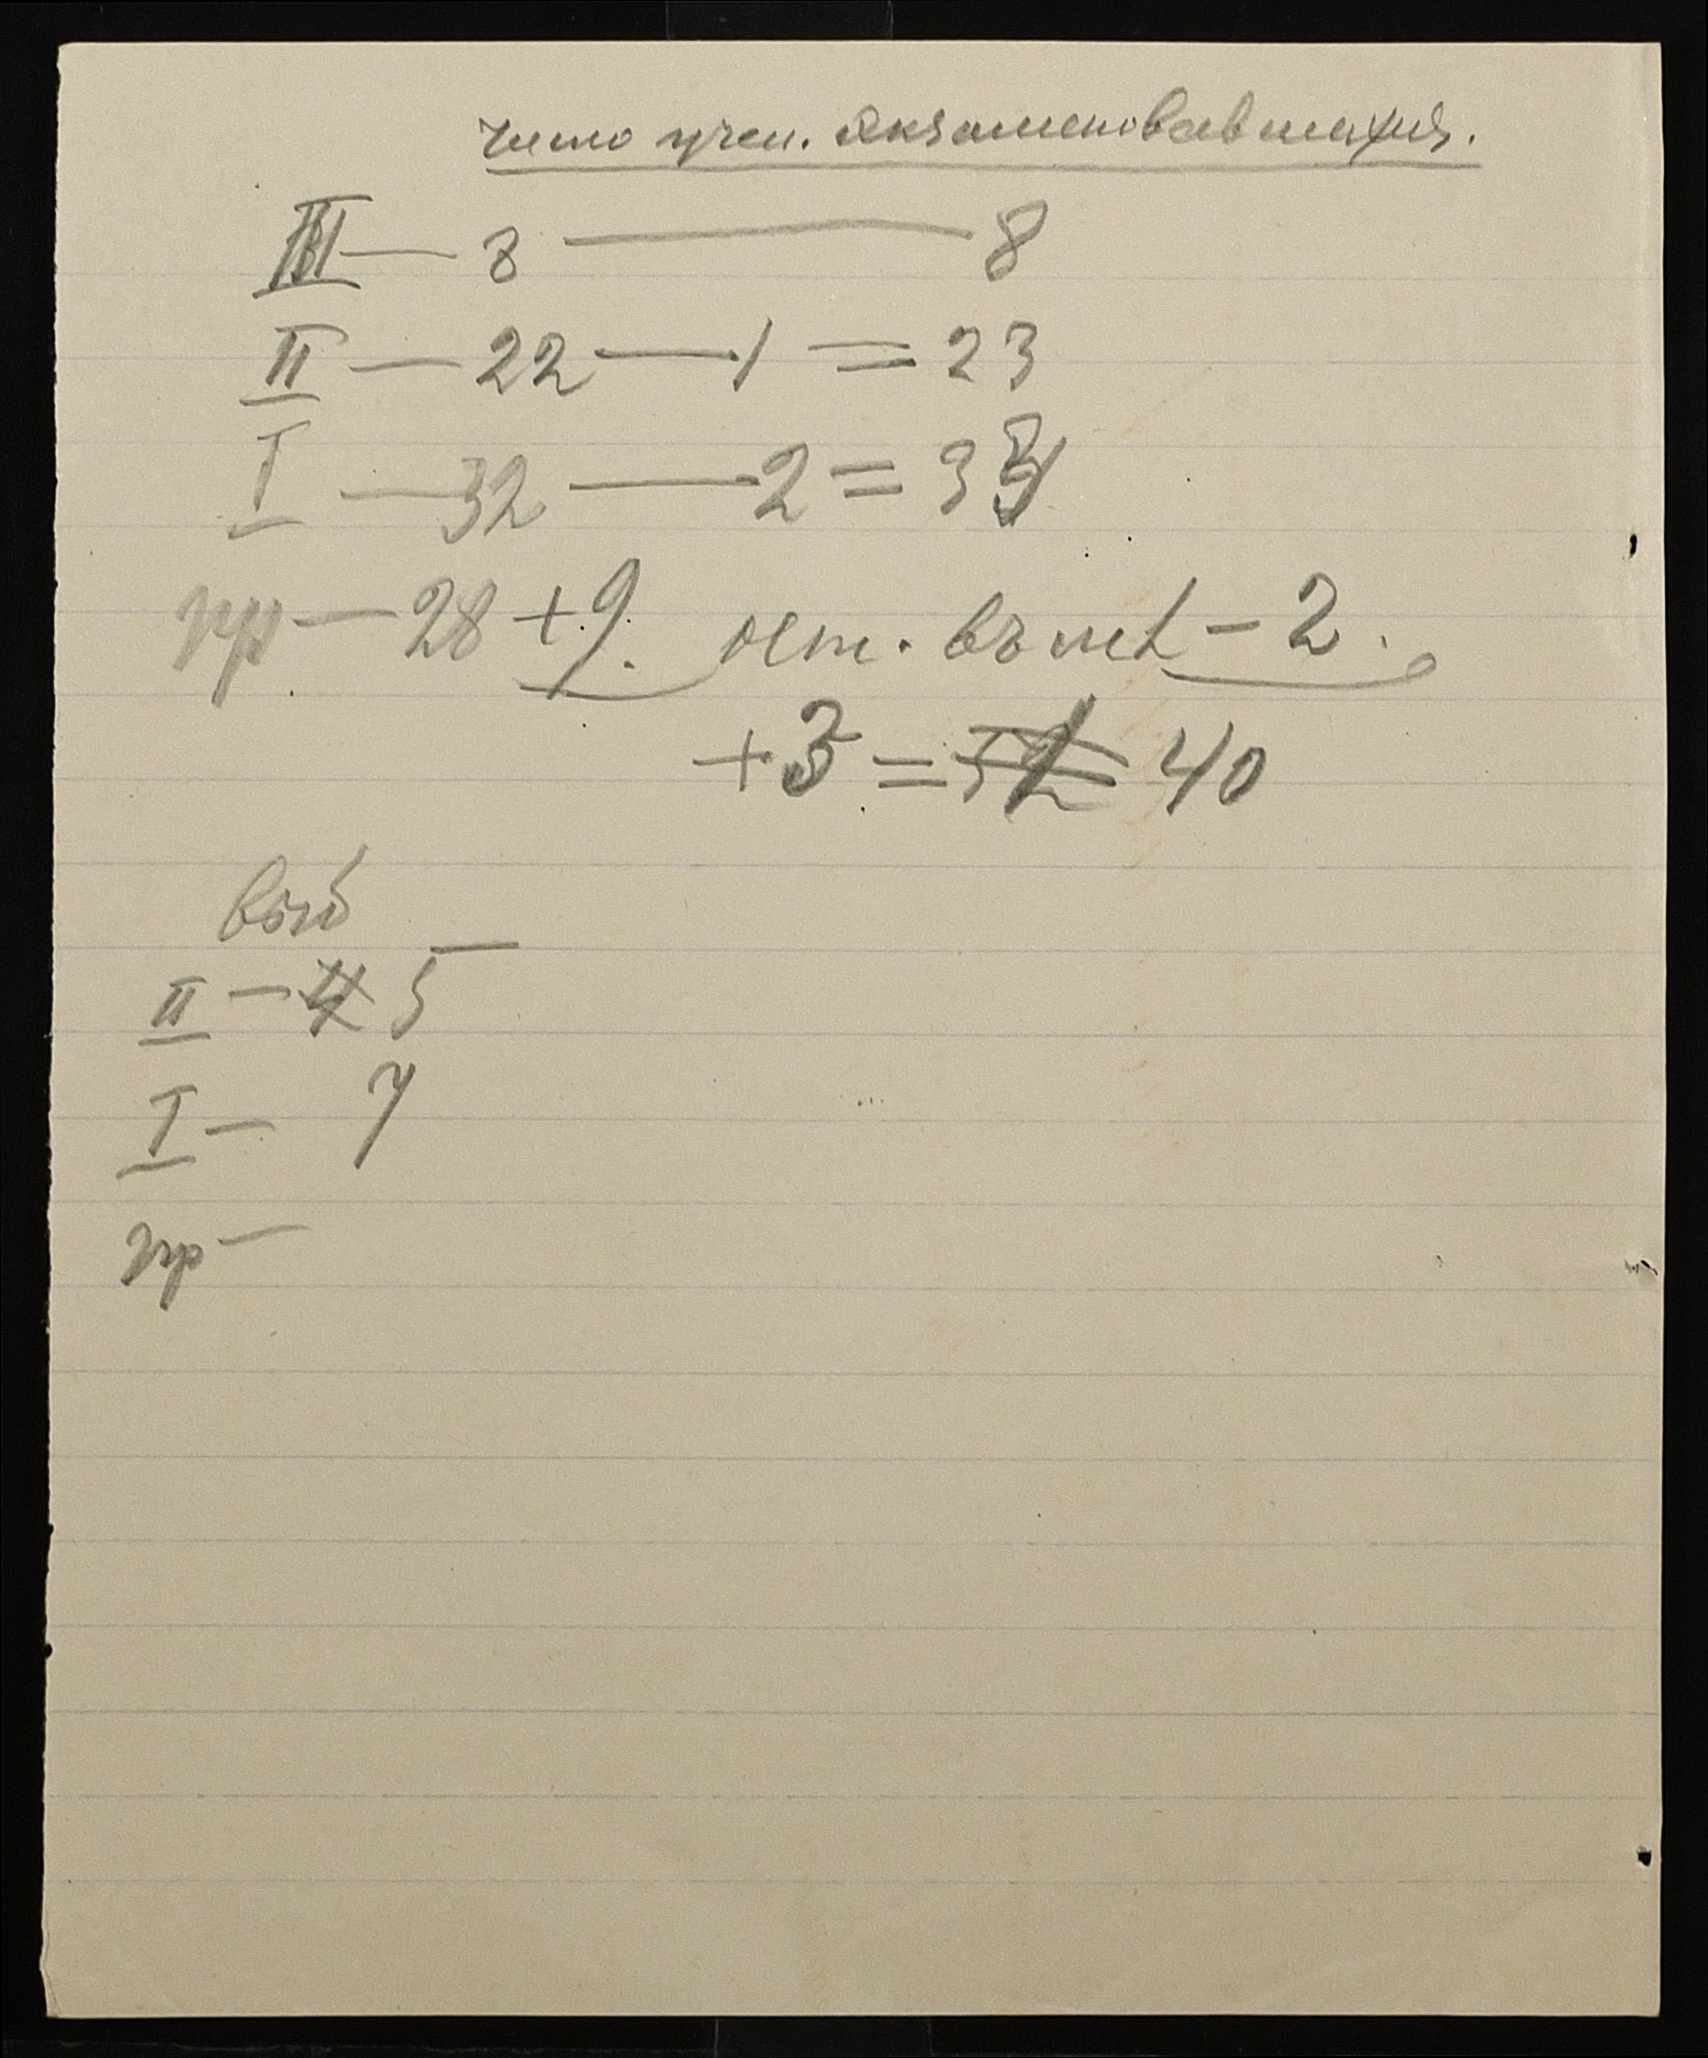 Число учен. Экзаменовавшихся.
III — 8 — 8
II — 22 — 1 = 23
I — 32 — 2 = 34
пр — 28 + 9. ост. въ шк. — 2.
+ 3 = 40
выб
II — 4 5 —
I — 7
пр —